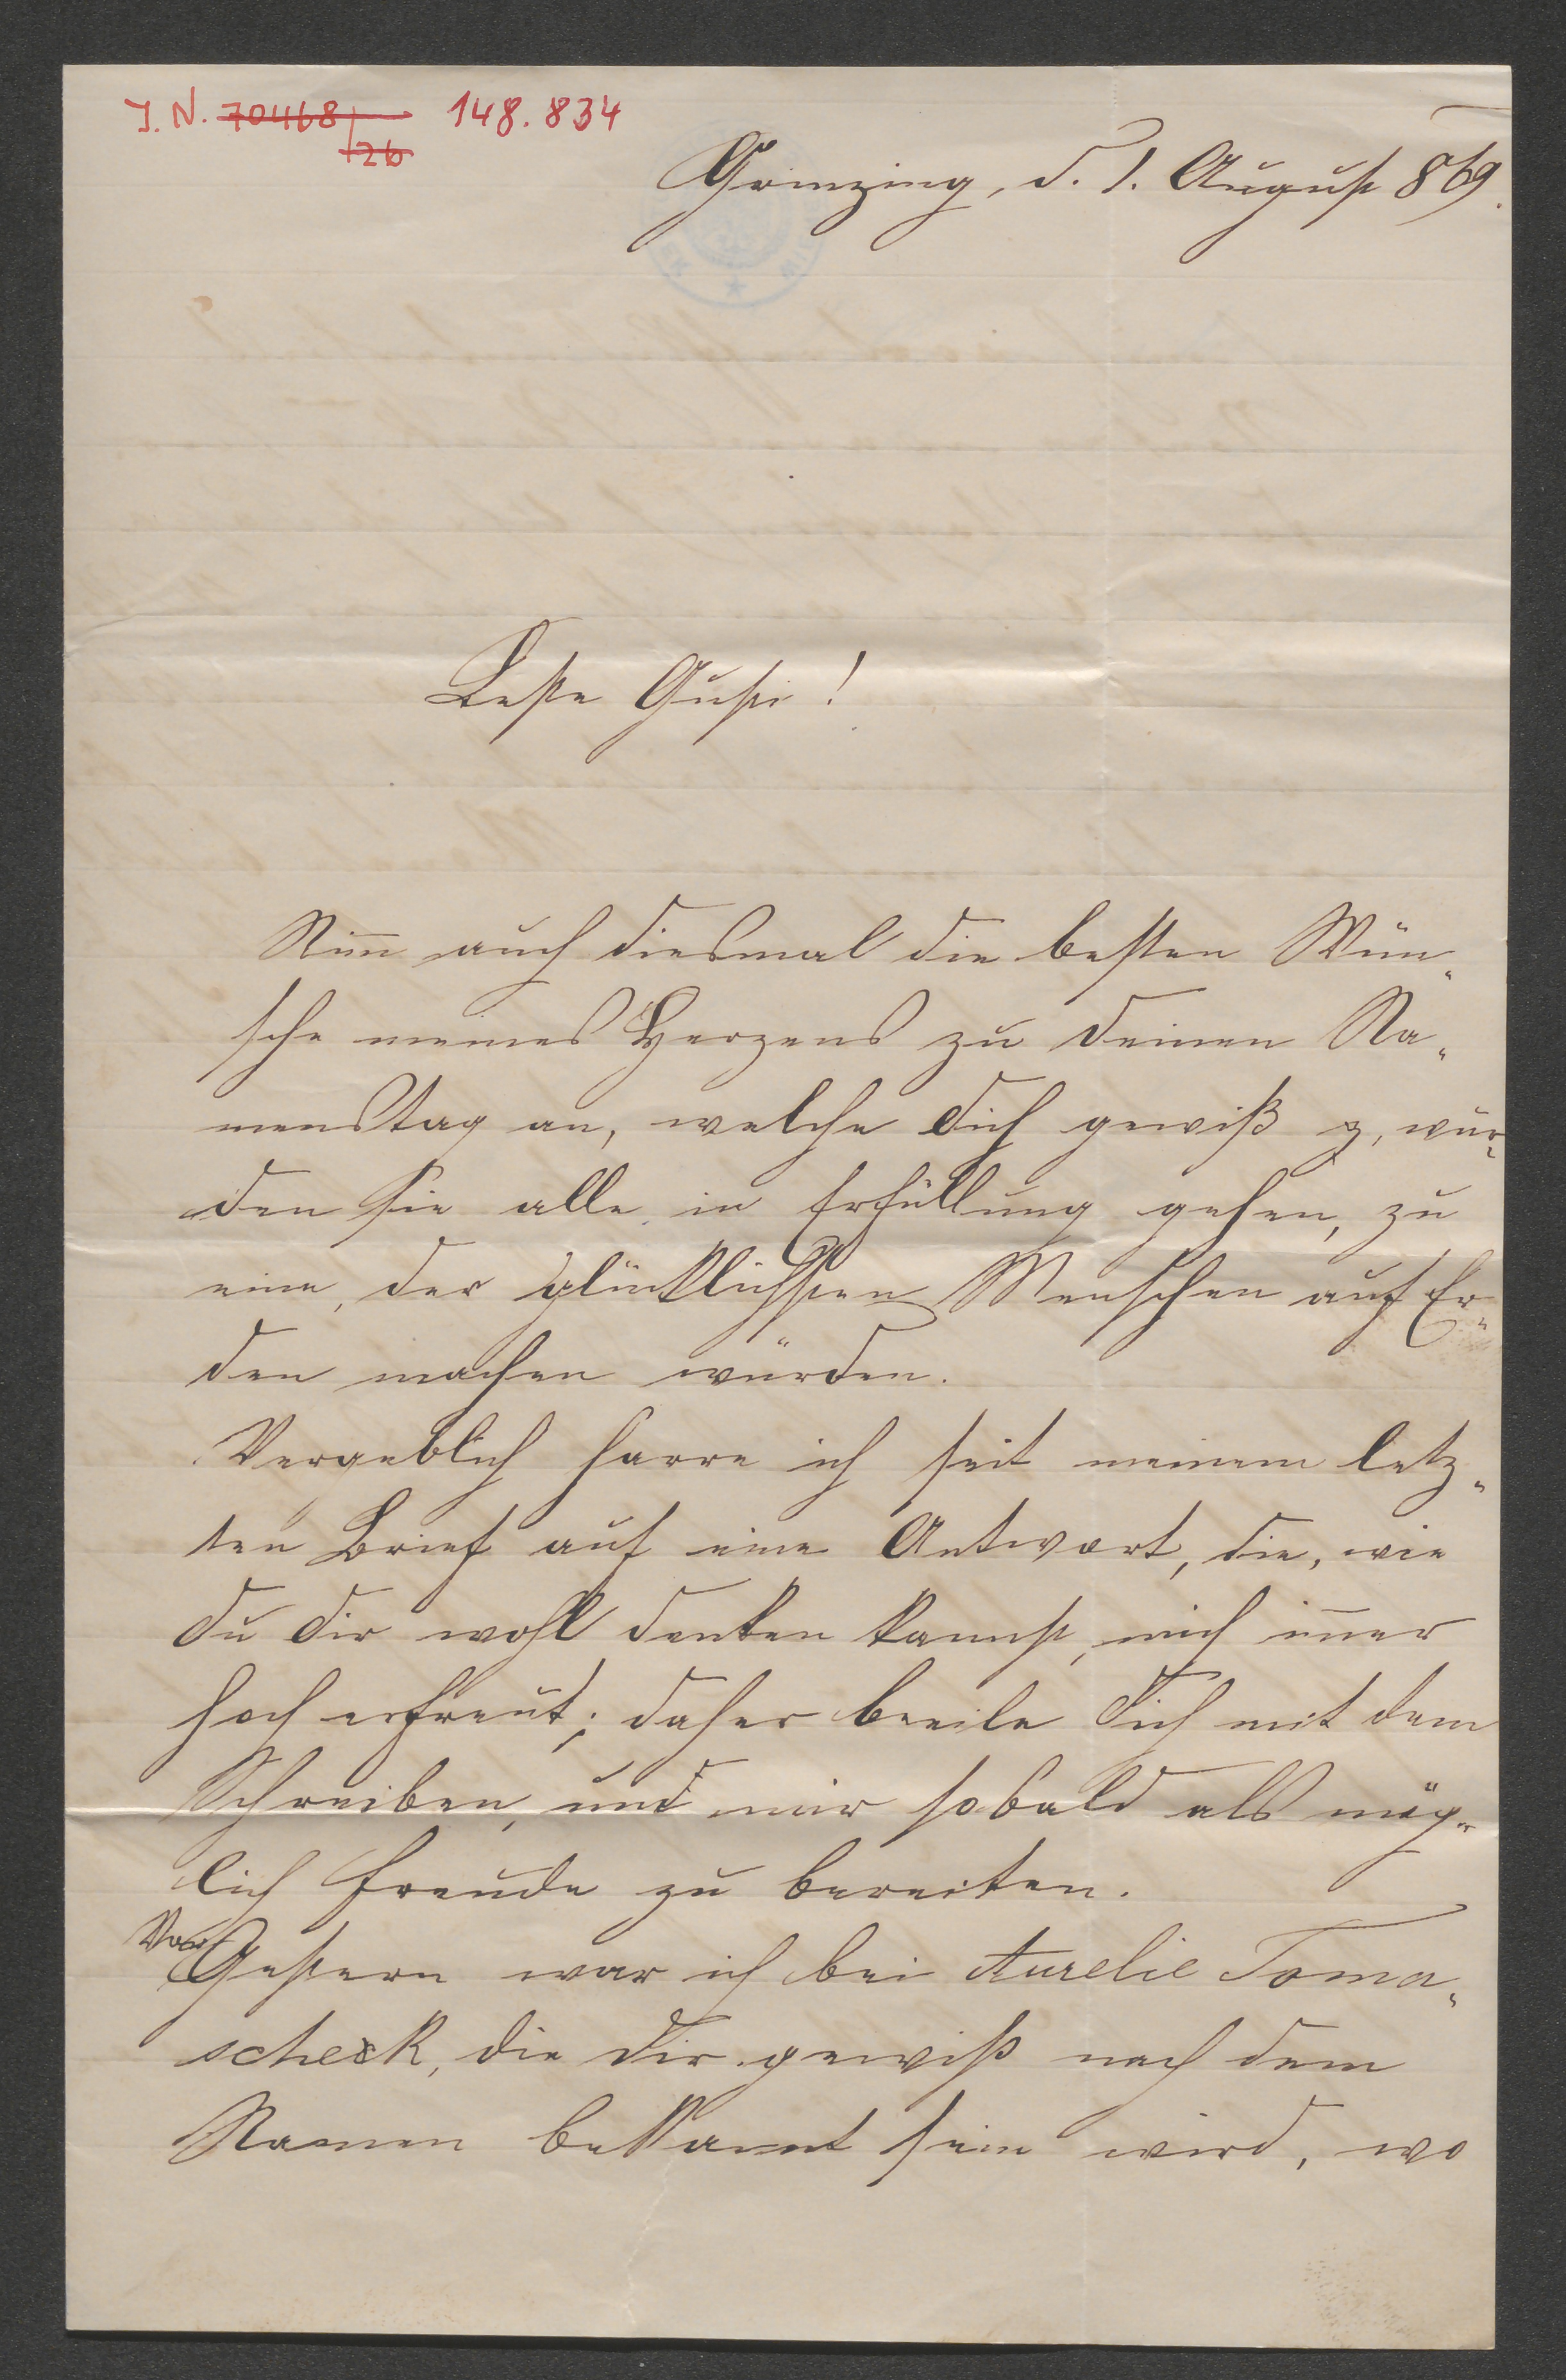 J. N. 70468/26 148.834
Grinzing, d. 1. August 869.
Beste Gusti!
Nim̅ auch diesmal die besten Wün„
sche meines Herzens zu deinen Na„
menstag an, welche dich gewiß, wür„
den sie alle in Erfüllung gehen, zu
eine, der glücklichsten Menschen auf Er„
den machen würden.
Vergeblich harre ich seit meinem letz„
ten Brief auf eine Antwort, die, wie
du dir wohl denken kannst, mich im̅er
hoch erfreut; daher beeile dich mit dem
Schreiben, und mir sobald als mög„
lich Freude zu bereiten.
VorGestern war ich bei Aurelie Toma„
scheck, die dir gewiß nach dem
Namen bekannt sein wird, wo